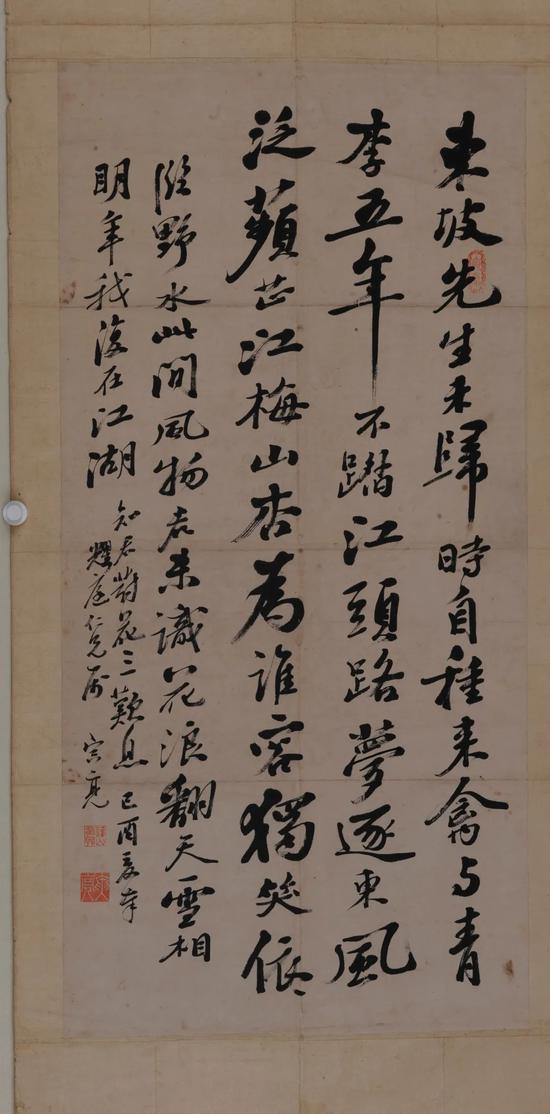 東坡先生未歸時自種来禽与青
李五年不踏江頭路夢逐東風
泛蘋芷江梅山杏為誰容獨笑依〻
臨野水此間風物君未識花浪翻天雪相
明年我復在江湖知君對花三歎息己酉夏奉
耀庭仁兄属 宗亮